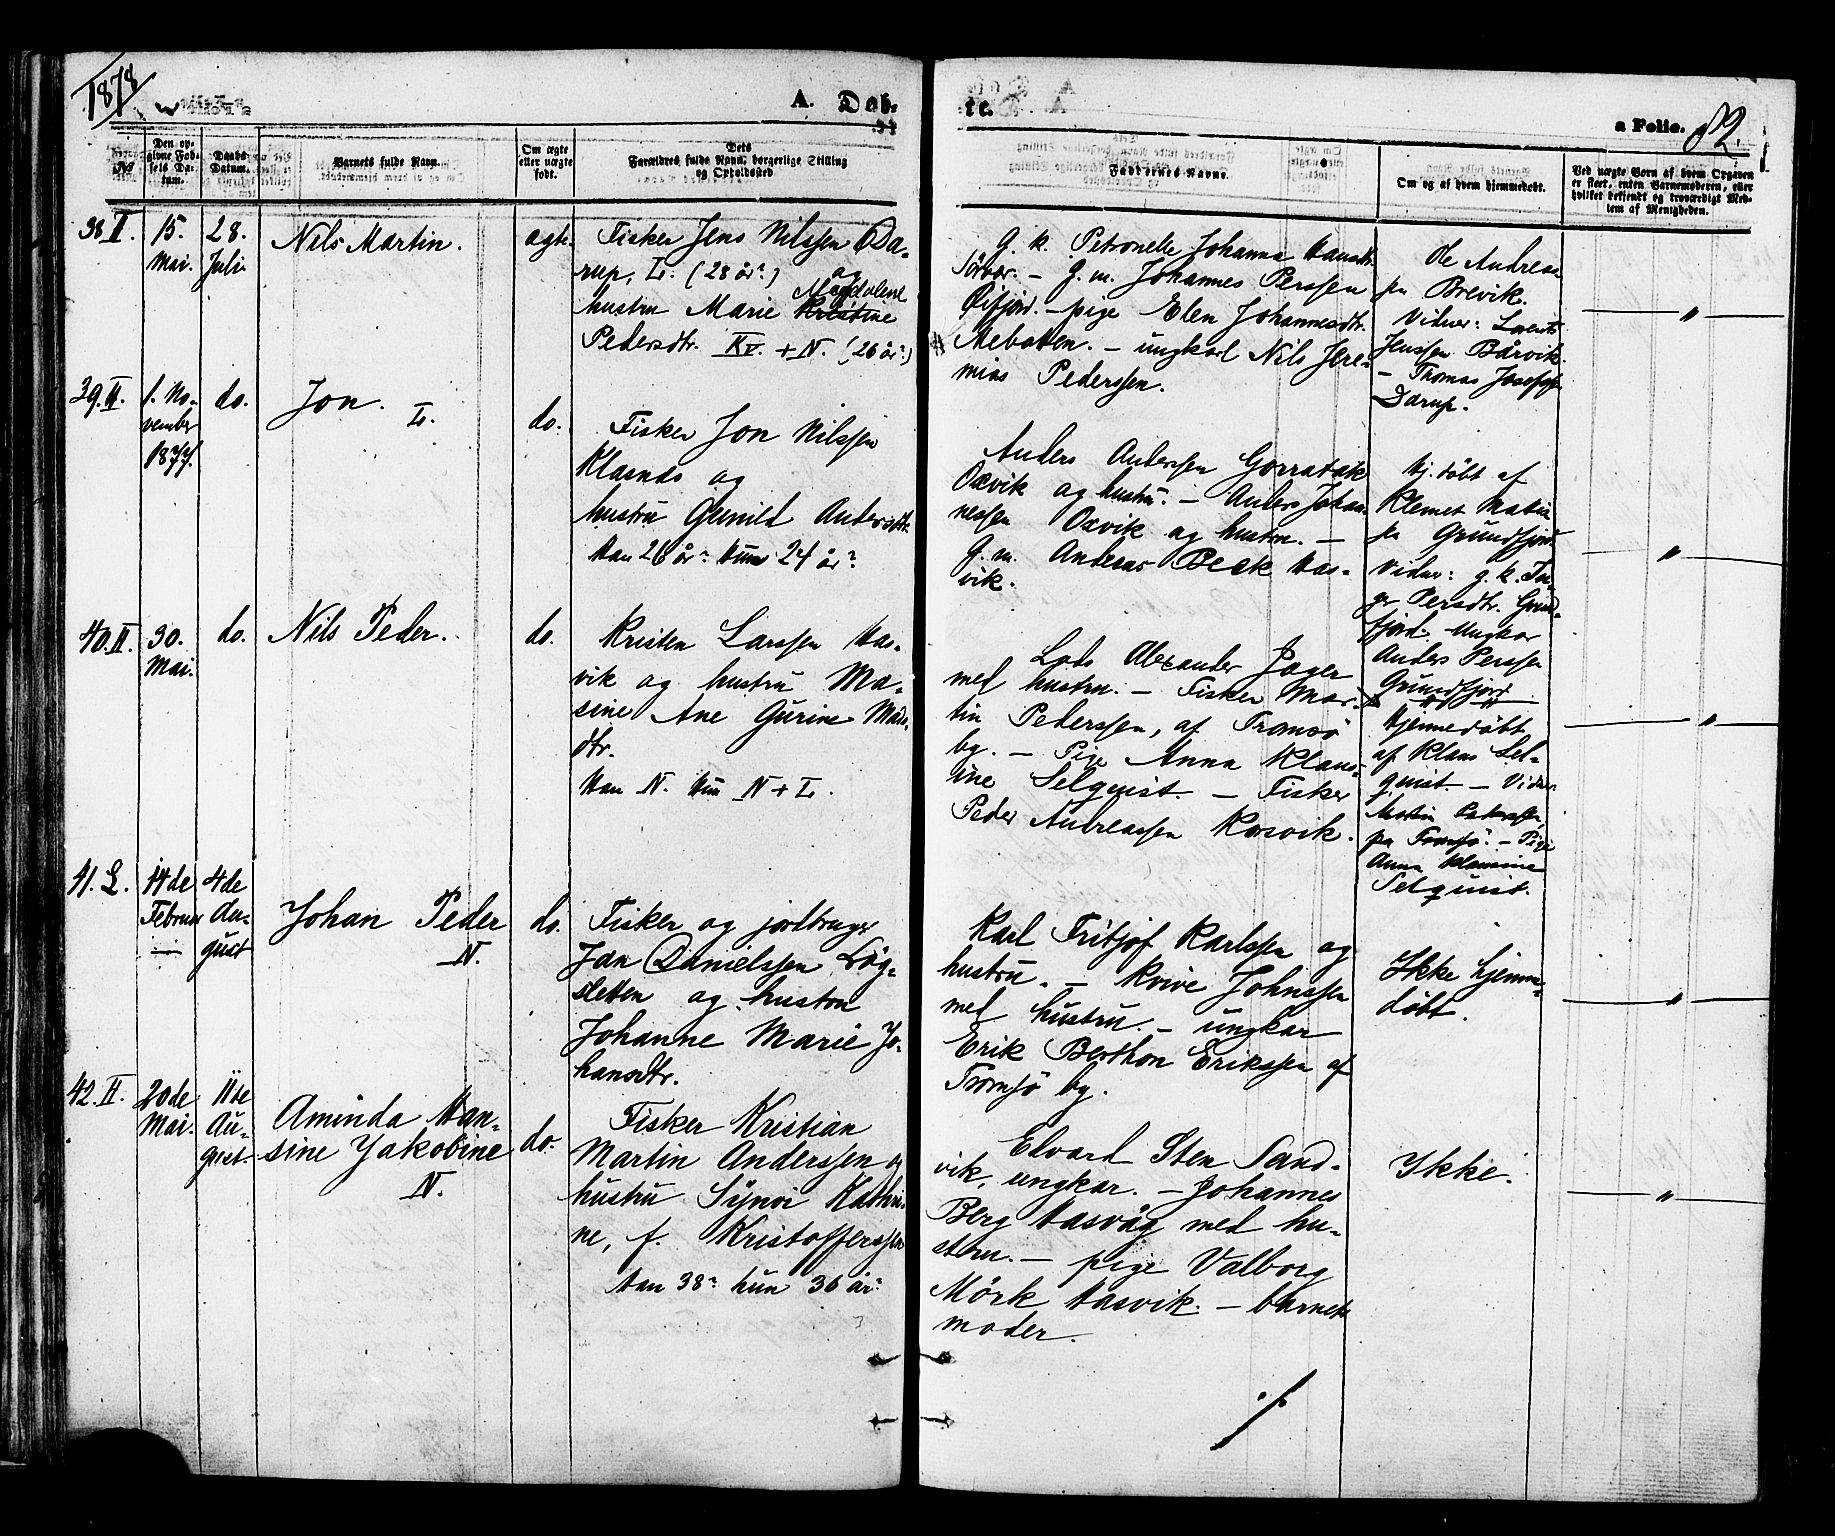 1878
A. Døb-
te.
a Folio. 82.
№
Den op-
givne Fød-
sels Da-
tum.
Daabs
Datum.
Barnets fulde Navn.
Om ægte
eller uægte
født.
Dets
Forældres fulde Navn, borgerlige Stilling
og Opholdssted
Faddernes Navne.
Om og af hvem hjemmedøbt.
Ved uægte Børn af hvem Opgaven
er skeet, enten Barnemoderen, eller
hvilket bekjendt og troværdigt Med-
lem af Menigheden.
38 II.
15.
Mai.
28.
Juli
Nils Martin.
ægte.
Fisker Jens Nilssen Da-
rup, L. (28 år?) og
hustru Marie Kristine Magdalene
Pedersdtr. Kv. + N. (26 år?)
G. k. Petronelle Johanna Hansdtr.
Sørvær. – G. m. Johannes Perssen
Øifjord. – pige Elen Johannesdtr.
Mebotten. – ungkarl Nils Jere-
mias Pederssen.
Ole Andreas
pa Brevik.
Vidner: Lorents
Jenssen Bårvik.
– Thomas Josefss.
Darup.
"
39. II.
1. No-
vember
1877.
do.
Jon.
L.
do.
Fisker Jon Nilssen
Klasnds og
hustru Gunild Andersdtr.
Han 26 år? Hun 24 år?
Anders Anderssen
Oxvik og hustru. – Anders Johan-
nessen Oxvik og hustru. –
G. m. Andreas Beck Has-
vik.
Hj. døbt af
Klemet
pa Grundfjord
Vidner: g. k. In-
ger Persdtr. Grund-
fjord. Ungkar
Anders Perssen
Grundfjord
"
40. II.
30.
Mai.
do.
Nils Peder.
do.
Kristen Larssen Has-
vik og hustru Ma-
sine Ane Gurine Mads-
dtr.
Han N. Hun N + L.
Lods Alexander Jager
med hustru. – Fisker Mar-
tin Pederssen, af Tromsö
by. – Pige Anna Klau-
sine Selquist. – Fisker
Peder Andreassen Korsvik.
Hjemmedøbt
af Klaus Sel-
quist – Vidner
Martin Pederssen,
pa Tromsö. – Pige
Anna Klausine
Selquist.
"
41. L.
14de
Februar
4de
Au-
gust
Johan Peder
N.
do.
Fisker og jordbruger
Jan Danielssen Løg-
sletten og hustru
Johanne Marie Jo-
hansdtr.
Karl Fritjof Karlssen og
hustru. – Kvive Johnssen
med hustru. – ungkar
Erik Berthon Erikssen af
Tromsö by.
Ikke hjemme-
døbt.
"
42. II.
20de
Mai.
11te
Au-
gust.
Aminda Han-
sine Jakobine
N.
do.
Fisker Kristian
Martin Anderssen og
hustru Synøi Kathri-
ne, f. Kristofferssen
Han 38? hun 36 år?
Edvard Sten Sand-
vik, ungkar. – Johannes
Berg Hasvåg med hu-
stru. – pige Valborg
Mörk Hasvik. – barnets
moder.
Ikke.
"